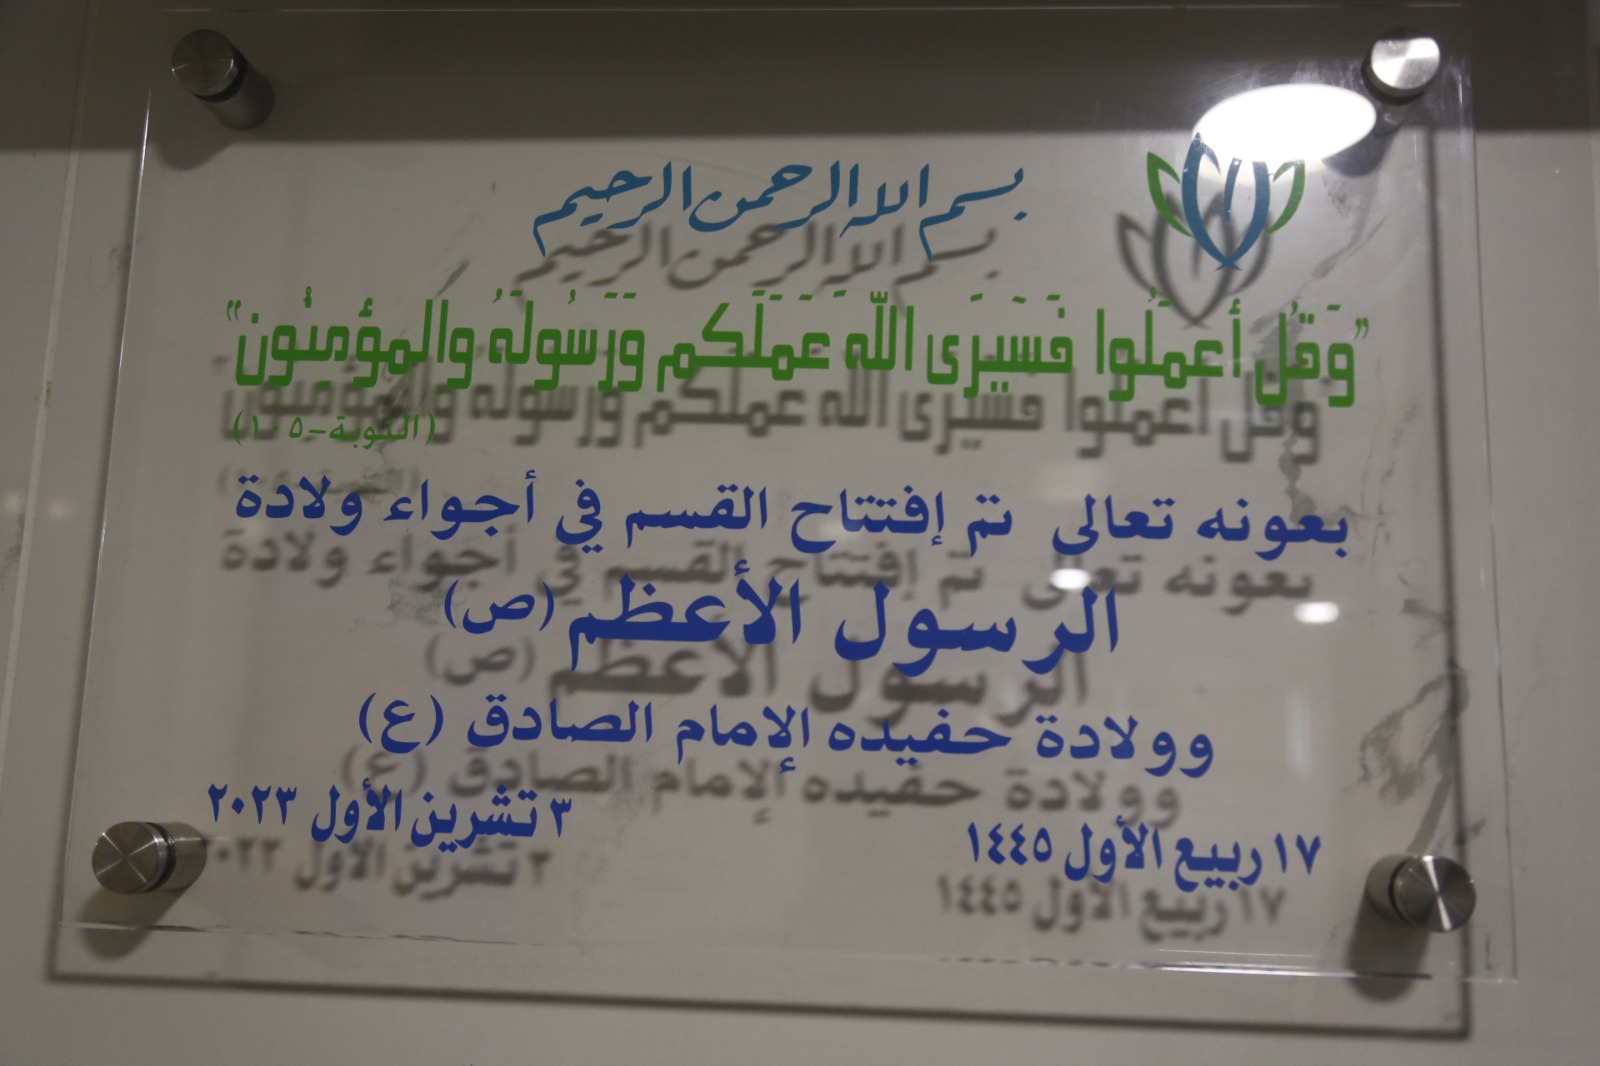 بسم الله الرحمن الرحيم
"وَقُل أعمَلُوا فَسَيَرَى اللَّهَ عَمَلَكم وَرَسُولهُ والمؤمنُون"
(التوبة-١٠٥)
بعونه تعالى تم إفتتاح القسم في أجواء ولادة
الرسول الأعظم (ص)
وولادة حفيده الإمام الصادق (ع)
١٧ ربيع الأول ١٤٤٥
٣ تشرين الأول ٢٠٢٣